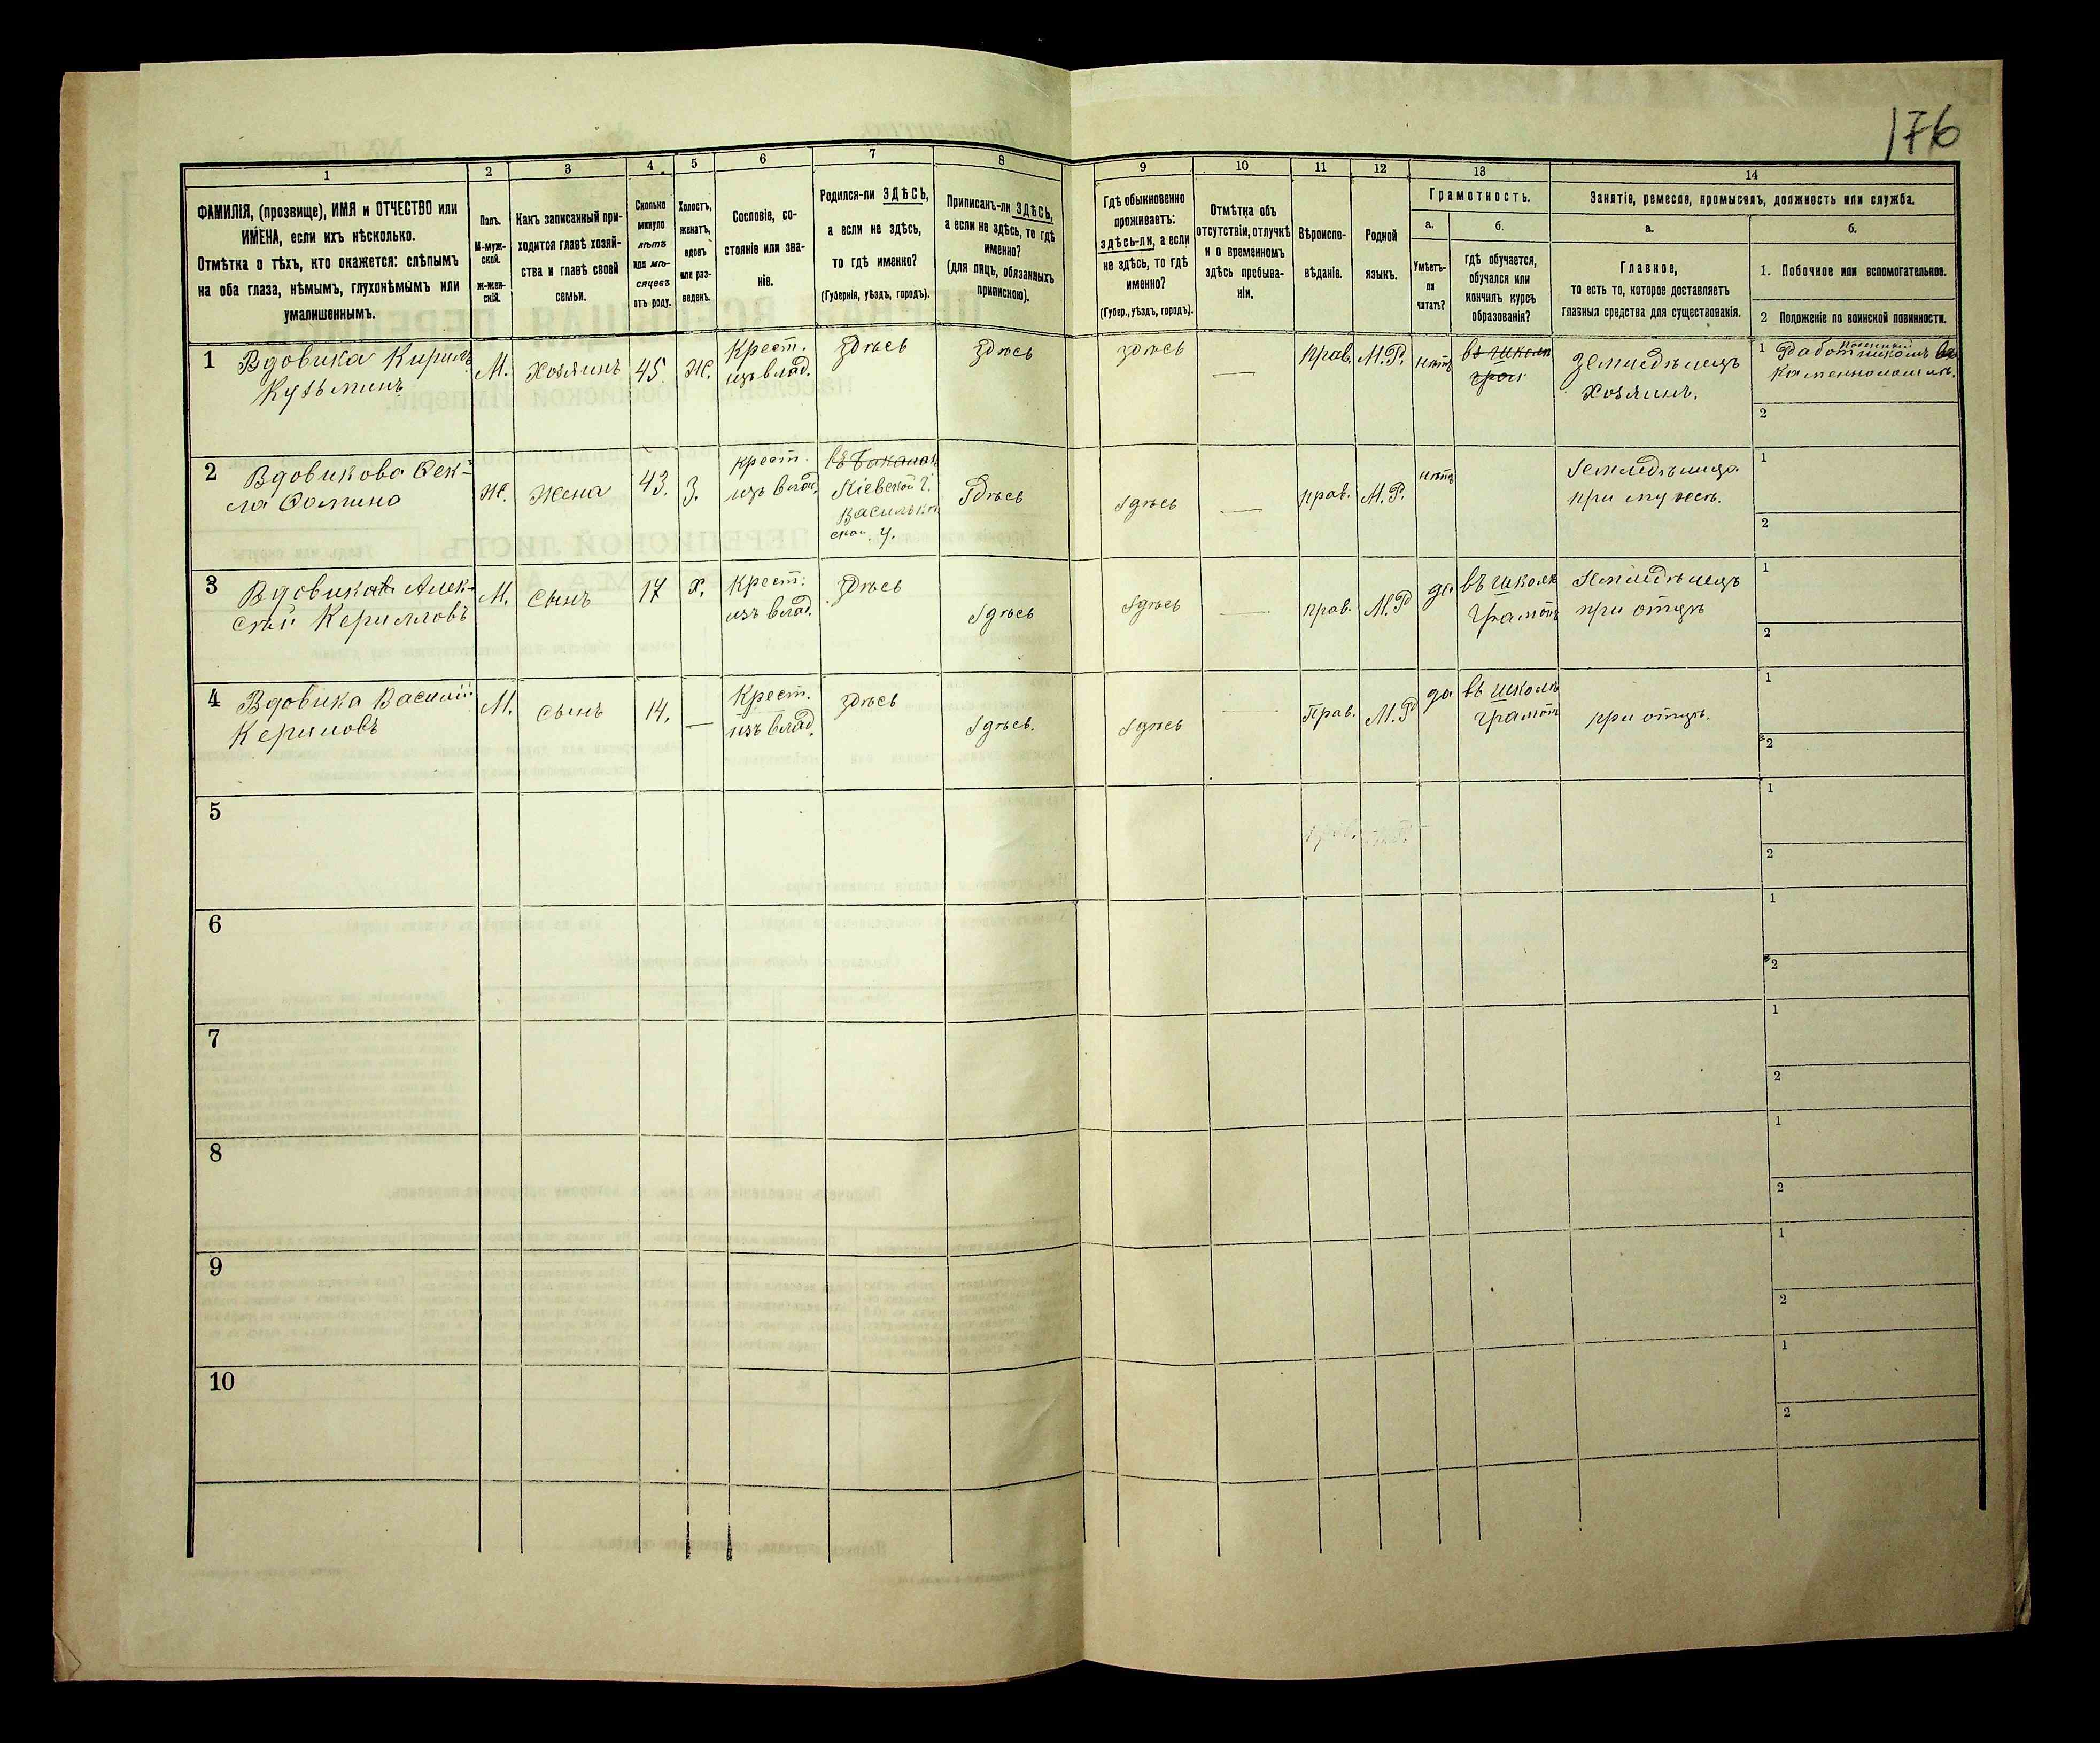 176
1 2 3 4 5 6 7 8 9 10 11 12 13 14
ФАМИЛІЯ, (прозвище), ИМЯ и ОТЧЕСТВО или
ИМЕНА, если ихъ нѣсколько.
Отмѣтка о тѣхъ, кто окажется: слѣпымъ
на оба глаза, нѣмымъ, глухонѣмымъ или
умалишеннымъ.
Полъ.
М-муж-
ской.
Ж-жен-
скій.
Какъ записанный при-
ходится главѣ хозяй-
ства и главѣ своей
семьи.
Сколько
минуло
лѣтъ
или мѣ-
сяцевъ
отъ роду.
Холостъ,
женатъ,
вдовъ
или раз-
веденъ.
Сословіе, со-
стояніе или зва-
ніе.
Родился-ли ЗДѢСЬ,
а если не здѣсь,
то гдѣ именно?
(Губернія, уѣздъ, городъ).
Приписанъ-ли ЗДѢСЬ,
а если не здѣсь, то гдѣ
именно?
(для лицъ, обязанныхъ
припискою).
Гдѣ обыкновенно
проживаетъ:
здѣсь-ли, а если
не здѣсь, то гдѣ
именно?
(Губер., уѣздъ, городъ).
Отмѣтка объ
отсутствіи, отлучкѣ
и о временномъ
здѣсь пребыва-
ніи.
Вѣроиспо-
вѣданіе.
Родной
языкъ.
Грамотность.
а.
Умѣетъ-
ли
читать?
б.
гдѣ обучается,
обучался или
кончилъ курсъ
образованія?
Занятіе, ремесло, промыселъ, должность или служба.
а.
Главное,
то есть то, которое доставляетъ
главныя средства для существованія.
б.
1. Побочное или вспомогательное.
2 Положеніе по воинской повинности.
1 Вдовика Кирилъ
Кузьминъ
М. Хозяинъ 45. Ж.
Крест.
изъ влад.
Здѣсь Здѣсь здѣсь — прав. М.Р. нѣтъ
въ школѣ
Земледѣлецъ
Хозяинъ.
1
каменноломнѣ.
2
2 Вдовикова Фек-
ла Фомина
Ж. Жена 43. З.
крест.
изъ влад.
Кіевской г.
Васильков
ской. у.
Здѣсь здѣсь — прав. М.Р. нѣтъ
Земледѣлица
при мужѣ.
1
2
3 Вдовика Алек-
сѣй Керилловъ
М. Сынъ 17 Х.
Крест.
изъ влад.
Здѣсь здѣсь здѣсь — прав. М.Р да
въ школѣ
грамоты
Земледѣлецъ
при отцѣ
1
2
4 Вдовика Василій
Кериловъ
М. Сынъ 14. —
Крест.
изъ влад.
Здѣсь здѣсь. здѣсь — Прав. М.Р да
въ школѣ
грамоты
при отцѣ.
1
2
5
1
2
6
1
2
7
1
2
8
1
2
9
1
2
10
1
2